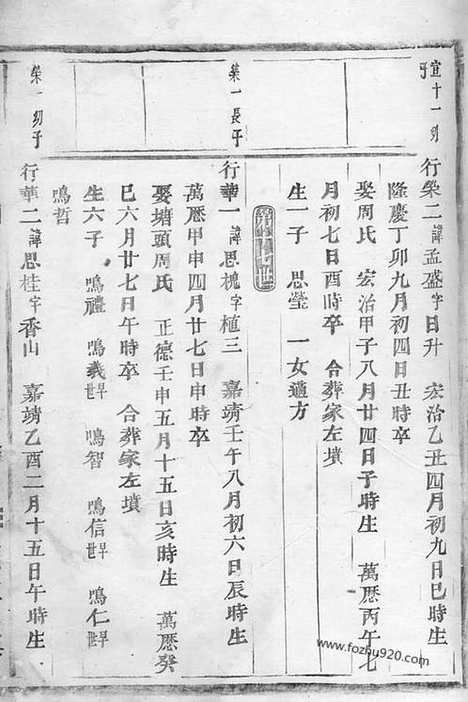 宣十一幼子
行榮二諱孟盛字日升 宏治乙丑四月初九日巳時生
隆慶丁卯九月初四日丑時卒
娶周氏 宏治甲子八月廿四日子時生 萬歷丙午七
月初七日酉時卒 合葬家左墳
生一子 思瑩 一女適方
榮一長子
行華一諱思槐字植三 嘉靖壬午八月初六日辰時生
萬歷甲申四月廿七日申時卒
娶塘頭周氏 正德壬申五月十五日亥時生 萬歷癸
巳六月廿七日午時卒 合葬家左墳
生六子 鳴禮 鳴義早世 鳴智 鳴信早世 鳴仁早世
鳴哲
榮一幼子
行華二諱思桂字香山 嘉靖乙酉二月十五日午時生
www.fozhu920.com